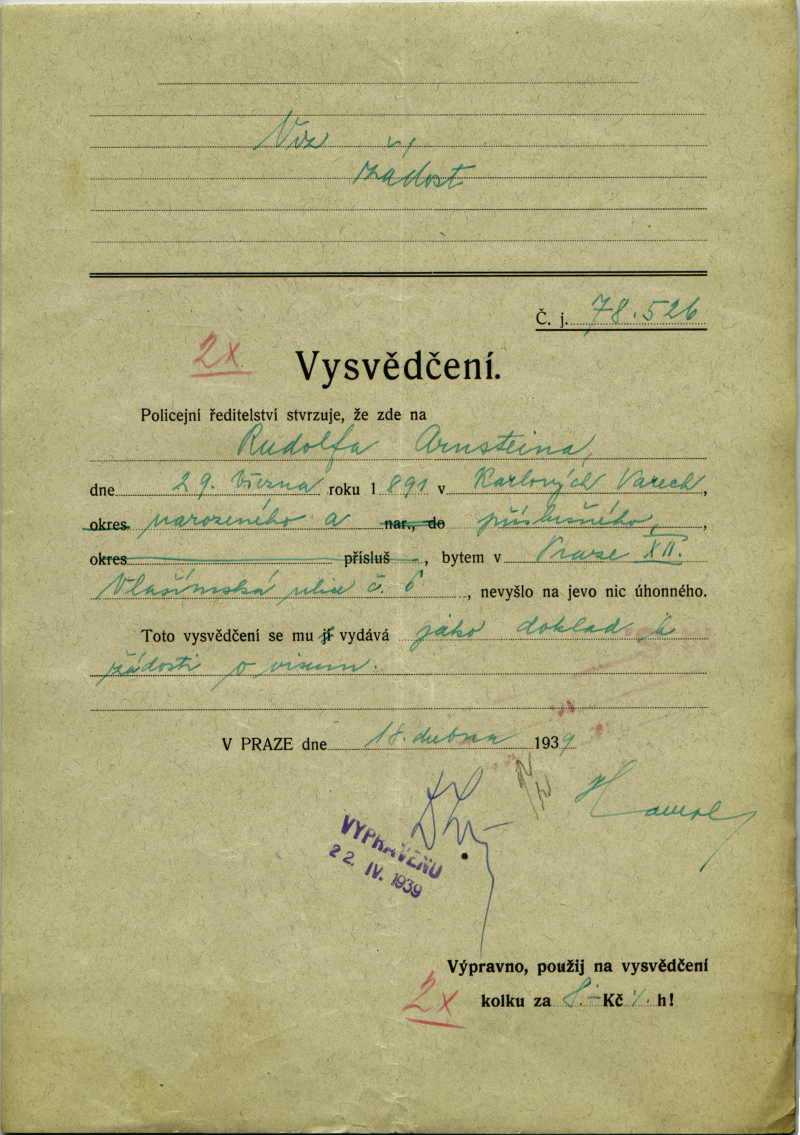 Viz
žádost
Č. j. 78.526
2x
Vysvědčení.
Policejní ředitelství stvrzuje, že zde na
Rudolfa Arnsteina,
dne 29. března roku 1891 v Karlových Varech,
okres narozeného a nar., do příslušného,
okres přísluš , bytem v Praze XII.
Vlašimská ulice č. 6 , nevyšlo na jevo nic úhonného.
Toto vysvědčení se mu jí vydává jako doklad k
žádosti o visum.
V PRAZE dne 18. dubna 1939
VYPRAVENO
22. IV. 1939
Výpravno, použij na vysvědčení
2x kolku za 8.– Kč %. h!